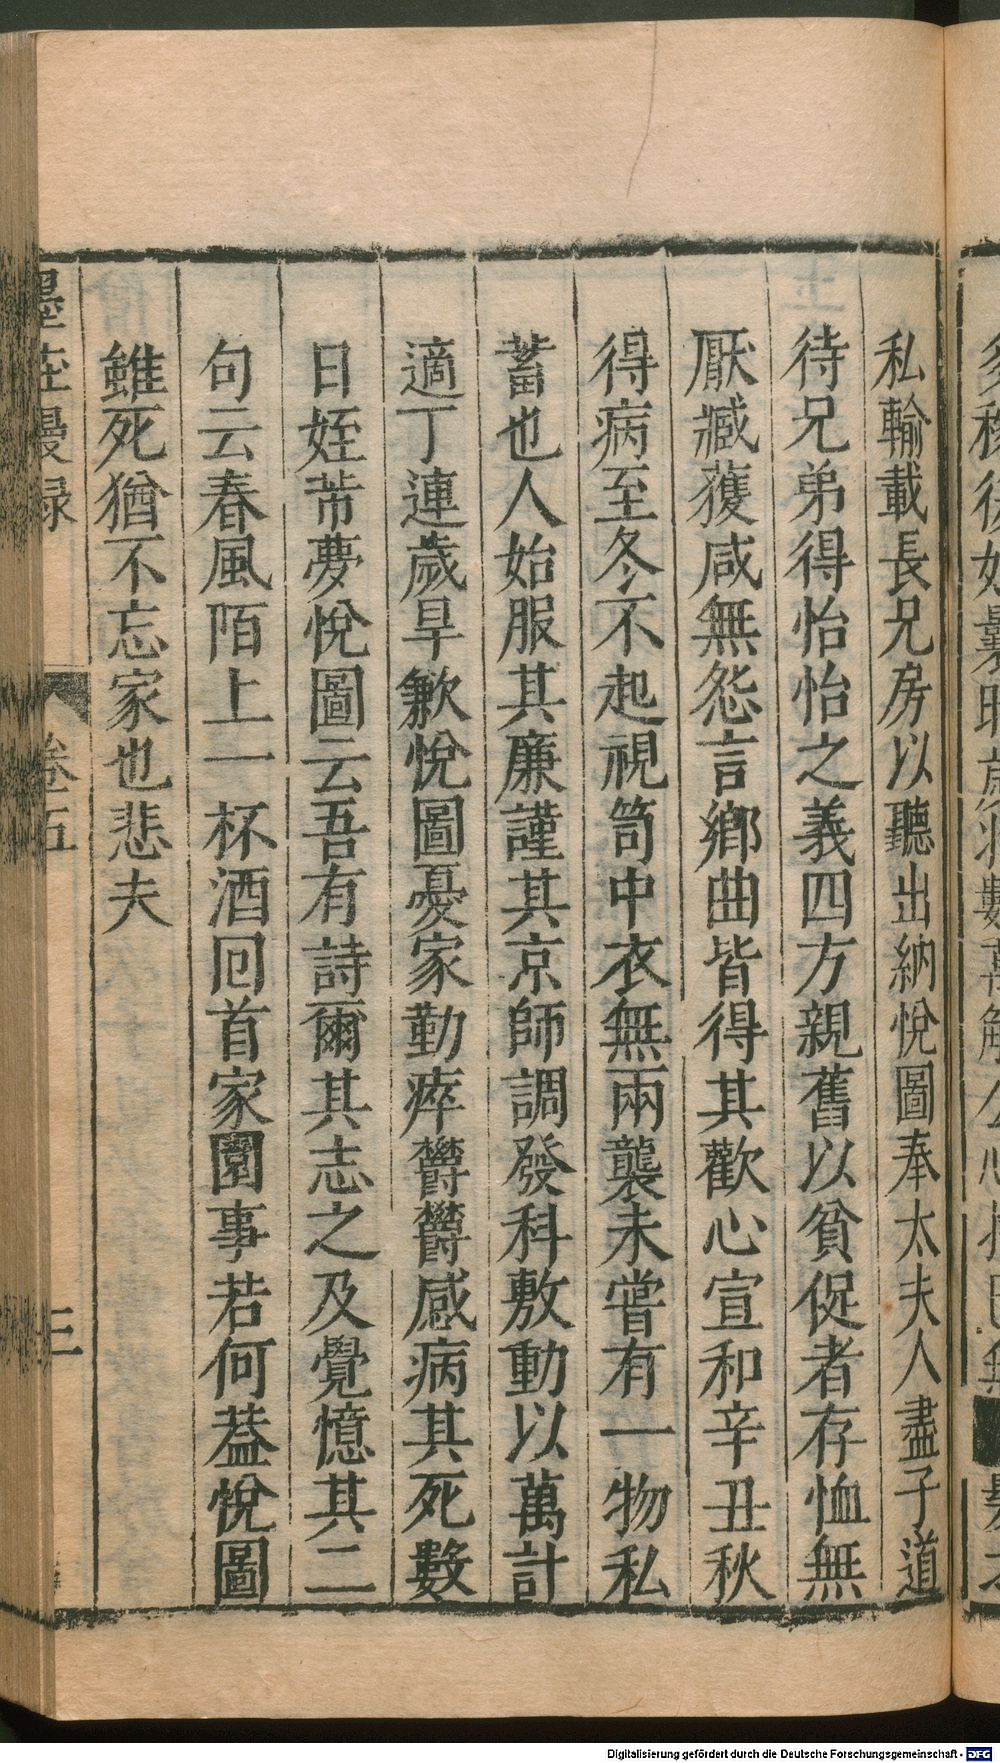 私輸載長兄房以聽出納悅圖奉太夫人盡子道
待兄弟得怡怡之義四方親舊以貧促者存恤無
厭臧獲咸無怨言鄉曲皆得其歡心宣和辛丑秋
得病至冬不起視笥中衣無兩襲未嘗有一物私
蓄也人始服其廉謹其京師調發科敷動以萬計
適丁連歲旱歉悅圖憂家勤瘁鬱鬱感病其死數
日姪芾夢悅圖云吾有詩爾其志之及覺憶其二
句云春風陌上一杯酒回首家園事若何葢悅圖
雖死猶不忘家也悲夫
墨莊漫録 卷五 三
Digitalisierung gefördert durch die Deutsche Forschungsgemeinschaft - DFG